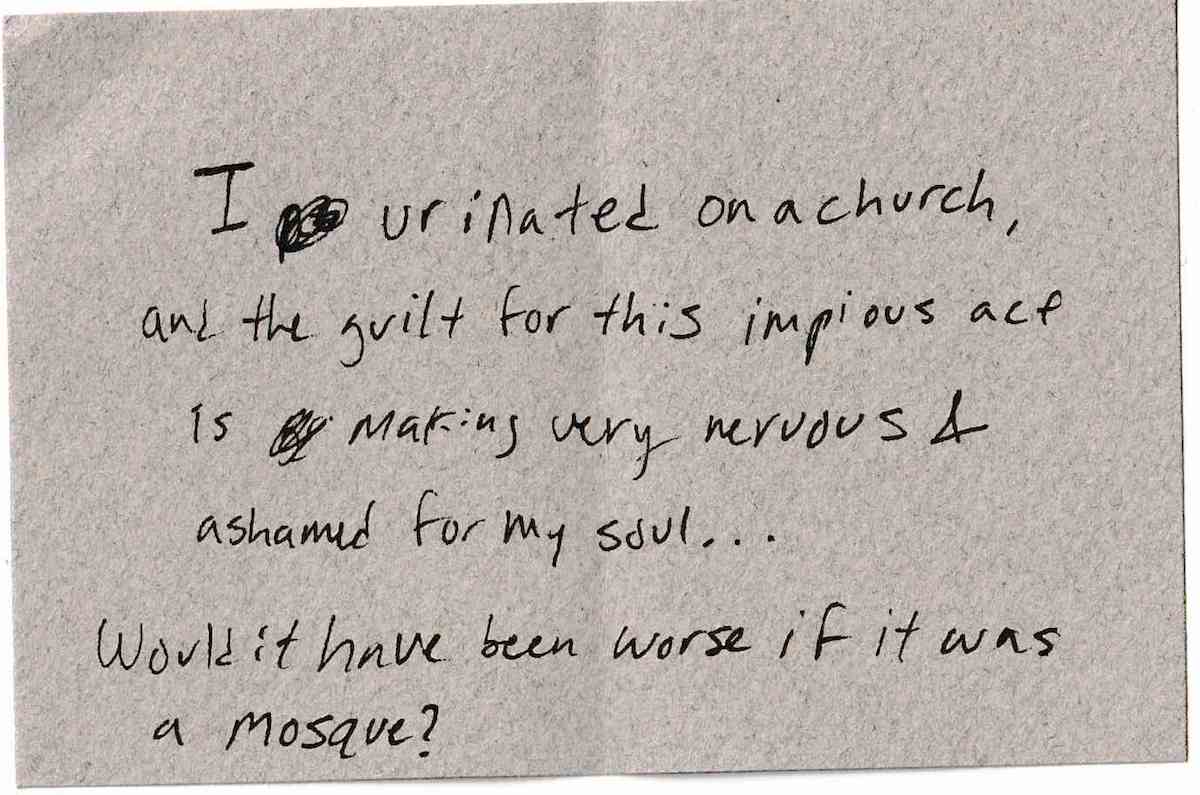 I urinated on a church,
and the guilt for this impious act
is making very nervous &
ashamed for my soul...
Would it have been worse if it was
a mosque?